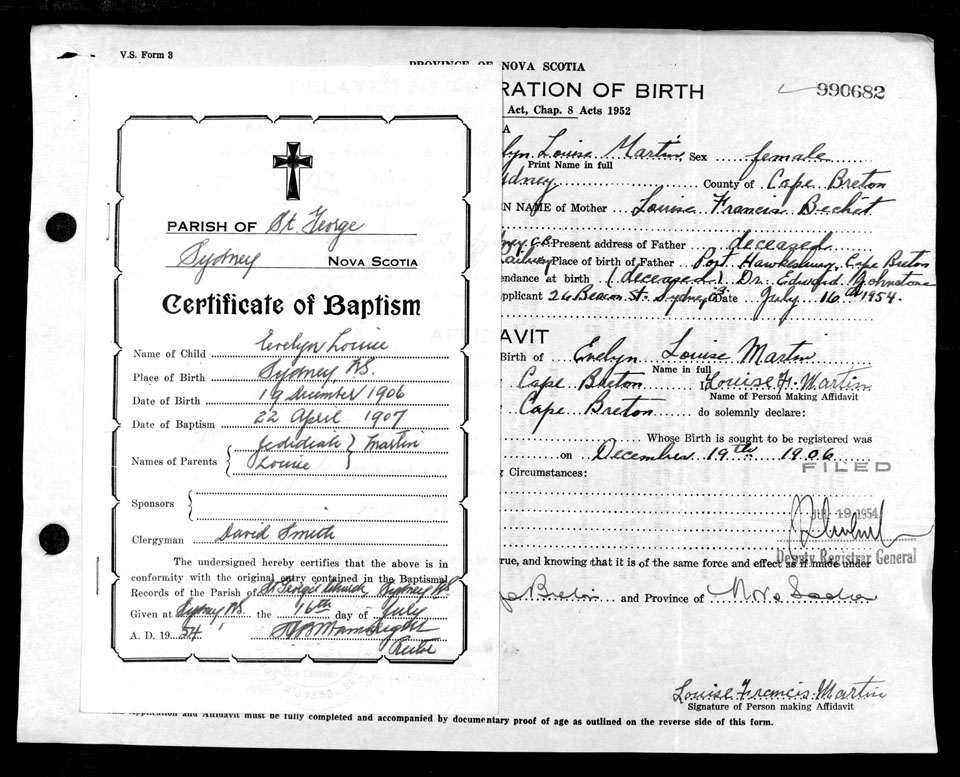 V.S. Form 3
PROVINCE OF NOVA SCOTIA
RATION OF BIRTH
990682
Act, Chap. 8 Acts 1952
PARISH OF St. George
Sydney NOVA SCOTIA
Certificate of Baptism
Name of Child Evelyn Louise
Place of Birth Sydney, N.S.
Date of Birth 19 December 1906
Date of Baptism 22 April 1907
Names of Parents { Jedidiah } Martin
{ Louise }
Sponsors {
Clergyman David Smith
The undersigned hereby certifies that the above is in
conformity with the original entry contained in the Baptismal
Records of the Parish of St George's Church, Sydney NS
Given at Sydney N.S. the 16th day of July
A. D. 19 54
Rector
lyn Louise Martin, Sex female
Print Name in full
ydney County of Cape Breton
N NAME of Mother Louise Francis Bechet
ney C.B. Present address of Father deceased
Place of birth of Father Port Hawkesbury, Cape Breton
endance at birth (deceased) Dr. Edward Johnstone
pplicant 26 Beacon St. Sydney Date July 16th 1954.
AVIT
Birth of Evelyn Louise Martin
Name in full
Cape Breton Louise F. Martin
Name of Person Making Affidavit
Cape Breton do solemnly declare:
Whose Birth is sought to be registered was
on December 19th 1906
FILED
g Circumstances:
JUL 19 1954
Deputy Registrar General
rue, and knowing that it is of the same force and effect as if made under
pe Breton and Province of Nova Scotia
Louise Francis Martin
Signature of Person making Affidavit
Application and Affidavit must be fully completed and accompanied by documentary proof of age as outlined on the reverse side of this form.